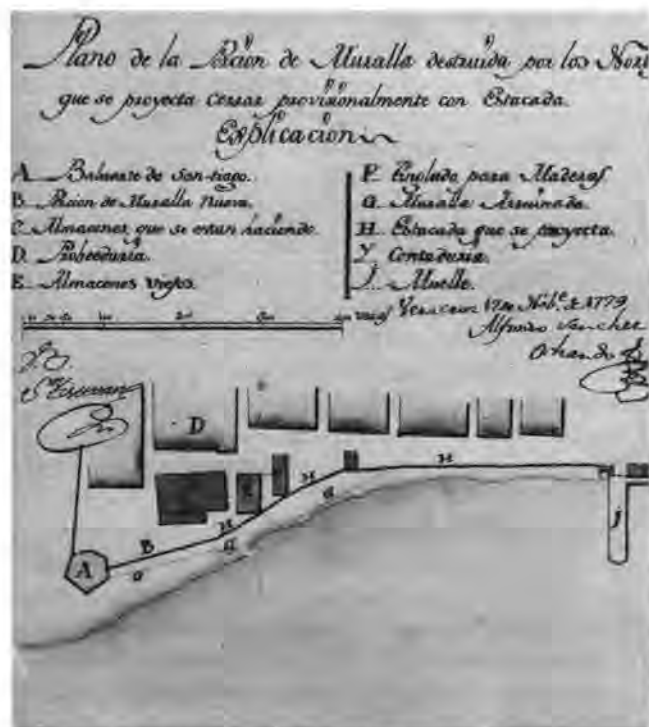 Plano de la Pcion de Muralla destruida por los
que se proyecta cerrar provisionalmente con Estacada.
Explicacion
A Baluarte de San-tiago.
B. Pcion de Muralla Nueva.
C. Almacenes que se estan haciendo.
D. Probeeduria.
E. Almacenes viejos.
F. Tinglado para Maderas
G. Muralla Arruinada.
H. Estacada que se proyecta.
Y. Contaduria.
J. Muelle.
Veracruz 17 de Nobe. de 1779
Alfonso Sanchez
D
H
H
H
G
G
B
G
A
J